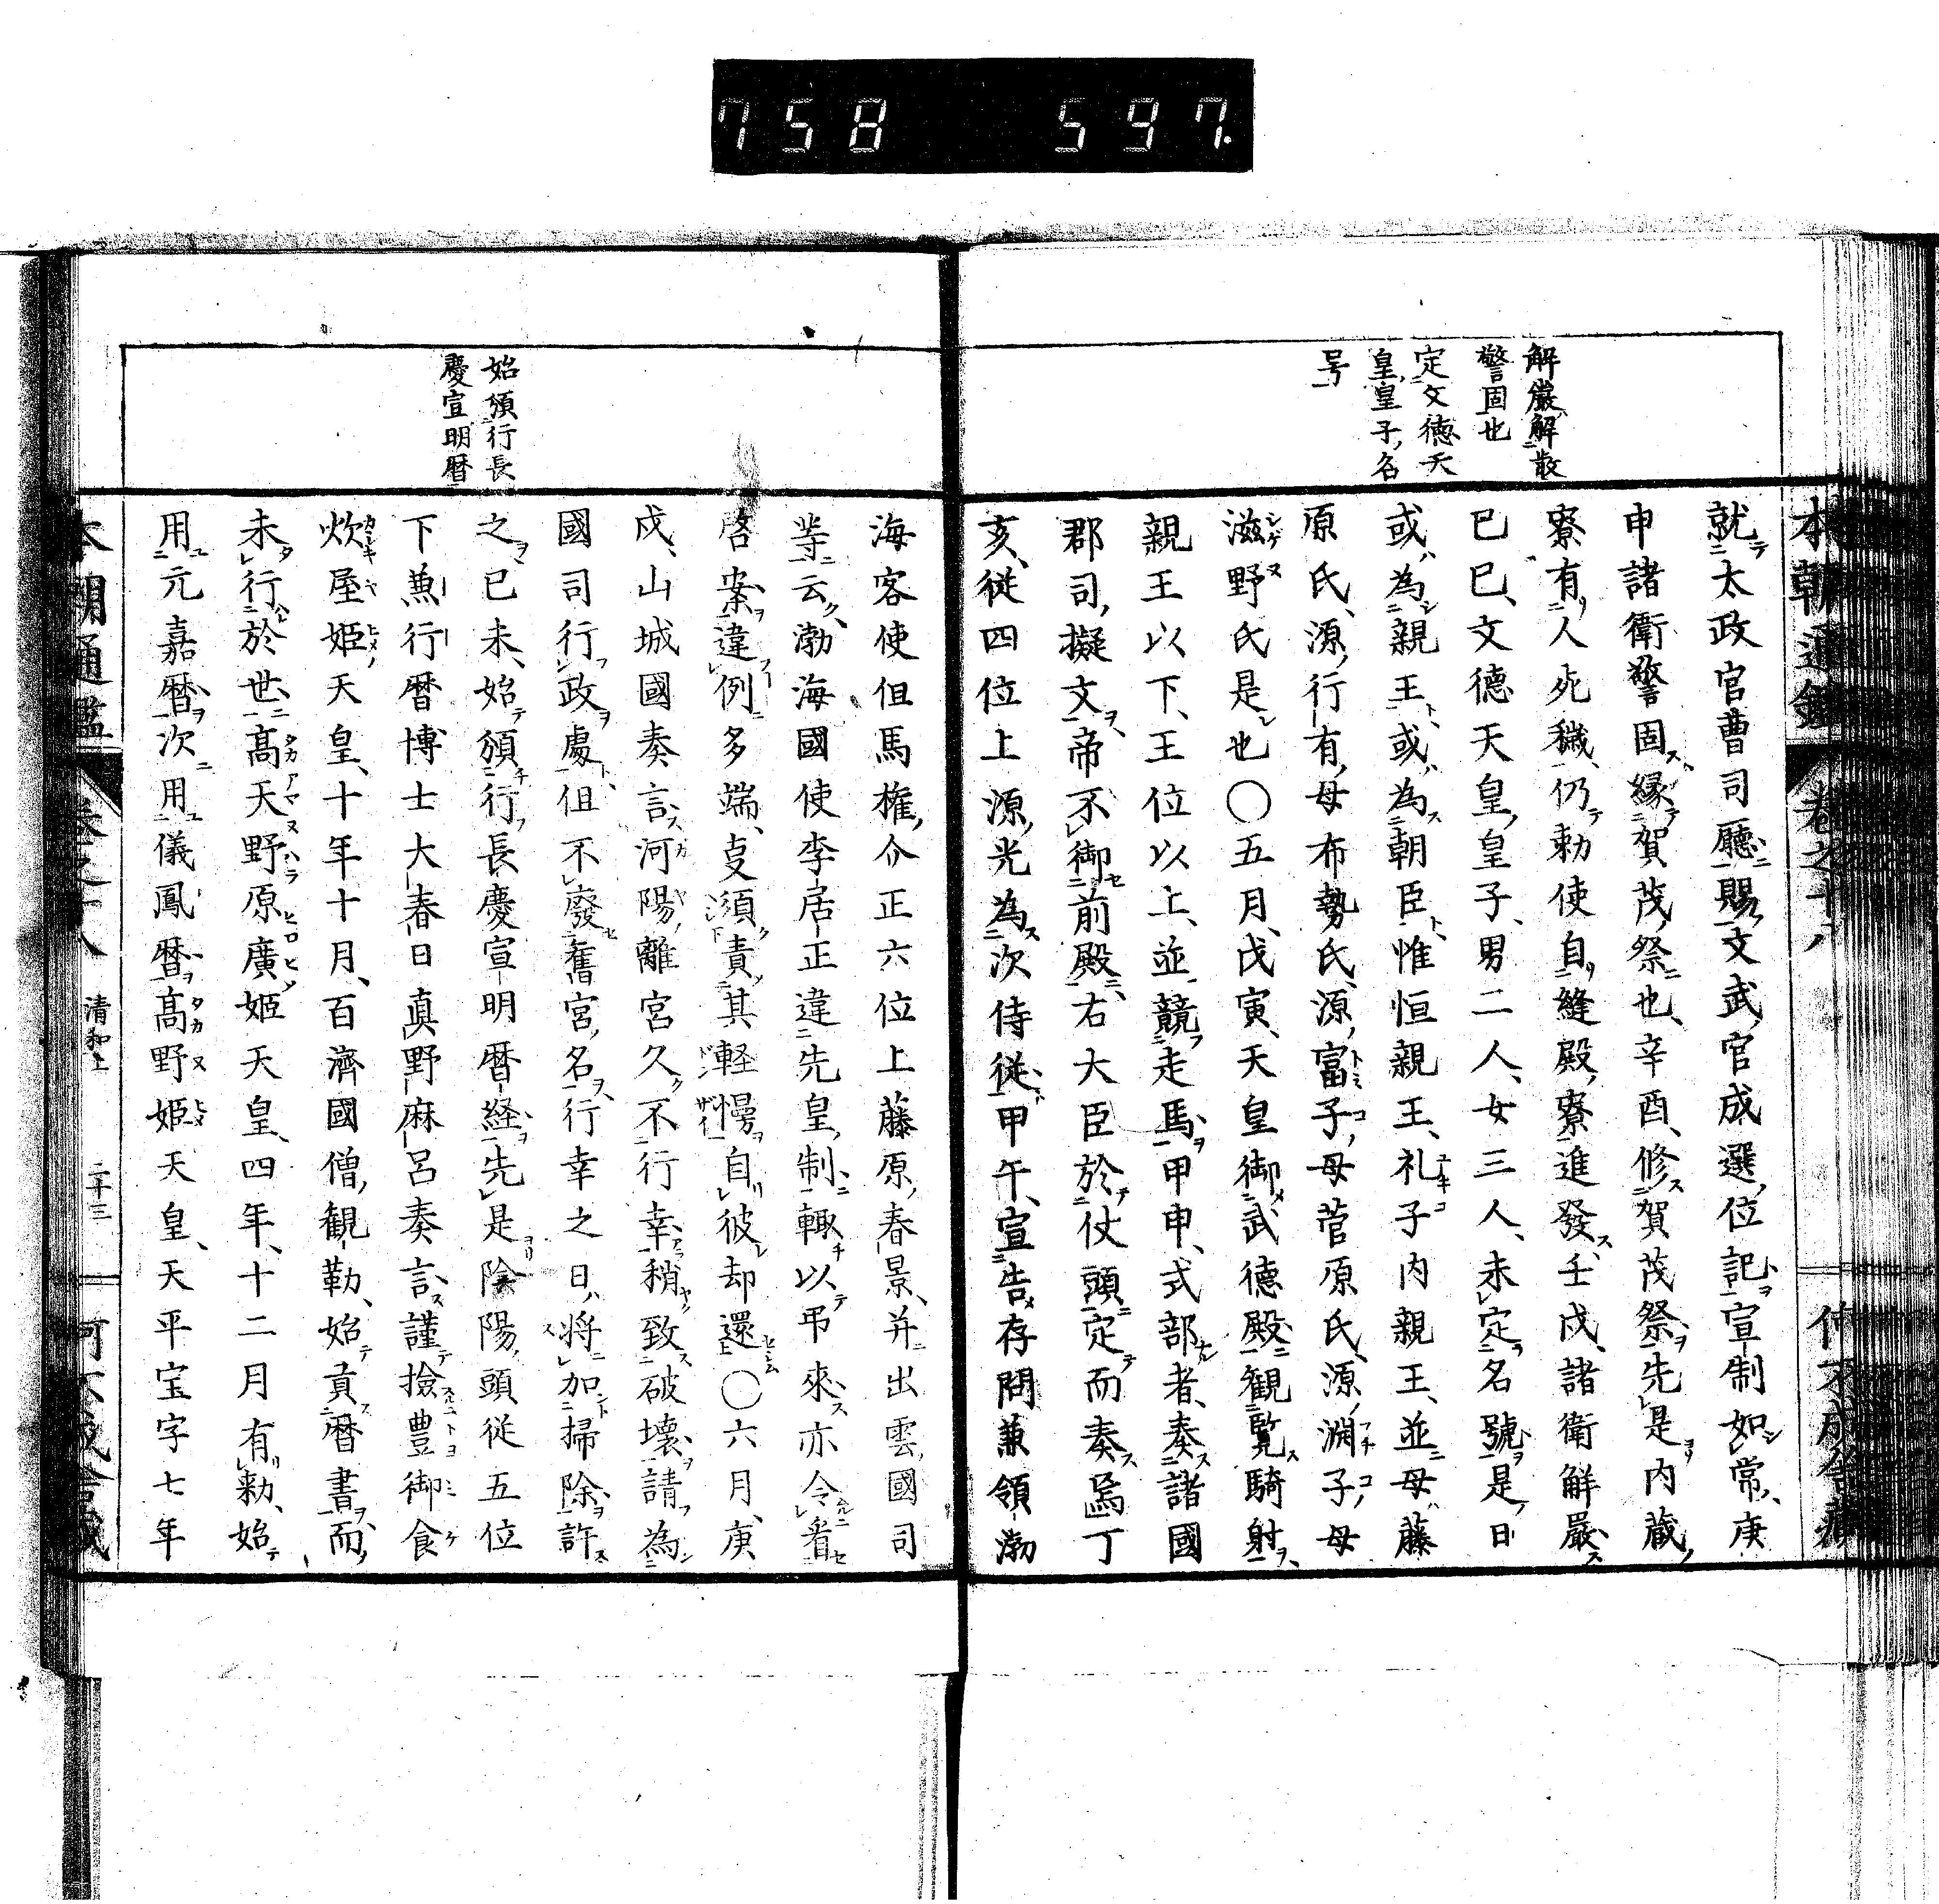 758 597.
解嚴解散
警固也
定文徳天
皇皇子名
号
本朝通鑑 卷之十八
就太政官曹司廳賜文武官成選位記宣制如常庚
申諸衛警固縁賀茂祭也辛酉修賀茂祭先是内蔵
寮有人死穢仍勅使自縫殿寮進發壬戌諸衛解嚴
己巳文徳天皇皇子男二人女三人未定名號是日
或為親王或為朝臣惟恒親王礼子内親王並母藤
原氏源行有母布勢氏源富子母菅原氏源淵子母
滋野氏是也○五月戊寅天皇御武德殿觀覧騎射
親王以下王位以上並競走馬甲申式部者奏諸國
郡司擬文帝不御前殿右大臣於仗頭定而奏焉丁
亥従四位上源光為次侍従甲午宣告存問兼領渤
始頒行長
慶宣明暦
海客使但馬權介正六位上藤原春景并出雲國司
等云渤海國使李居正違先皇制輙以弔來亦令看
啓案違例多端叓須責其軽慢自彼却還○六月庚
戌山城國奏言河陽離宮久不行幸稍致破壊請為
國司行政處但不廢舊宮名行幸之日將加掃除許
之己未始頒行長慶宣明暦経先是陰陽頭従五位
下兼行暦博士大春日真野麻呂奏言謹撿豊御食
炊屋姫天皇十年十月百濟國僧観勒始貢暦書而
未行於世高天野原廣姫天皇四年十二月有勅始
用元嘉暦次用儀鳳暦高野姫天皇天平宝字七年
本朝通鑑 卷之十八 清和上 二十三